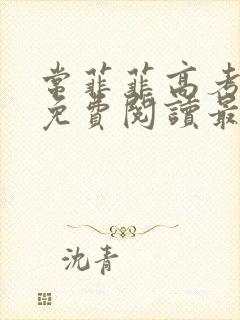 常菲菲高考
免費閱讀最
沈青